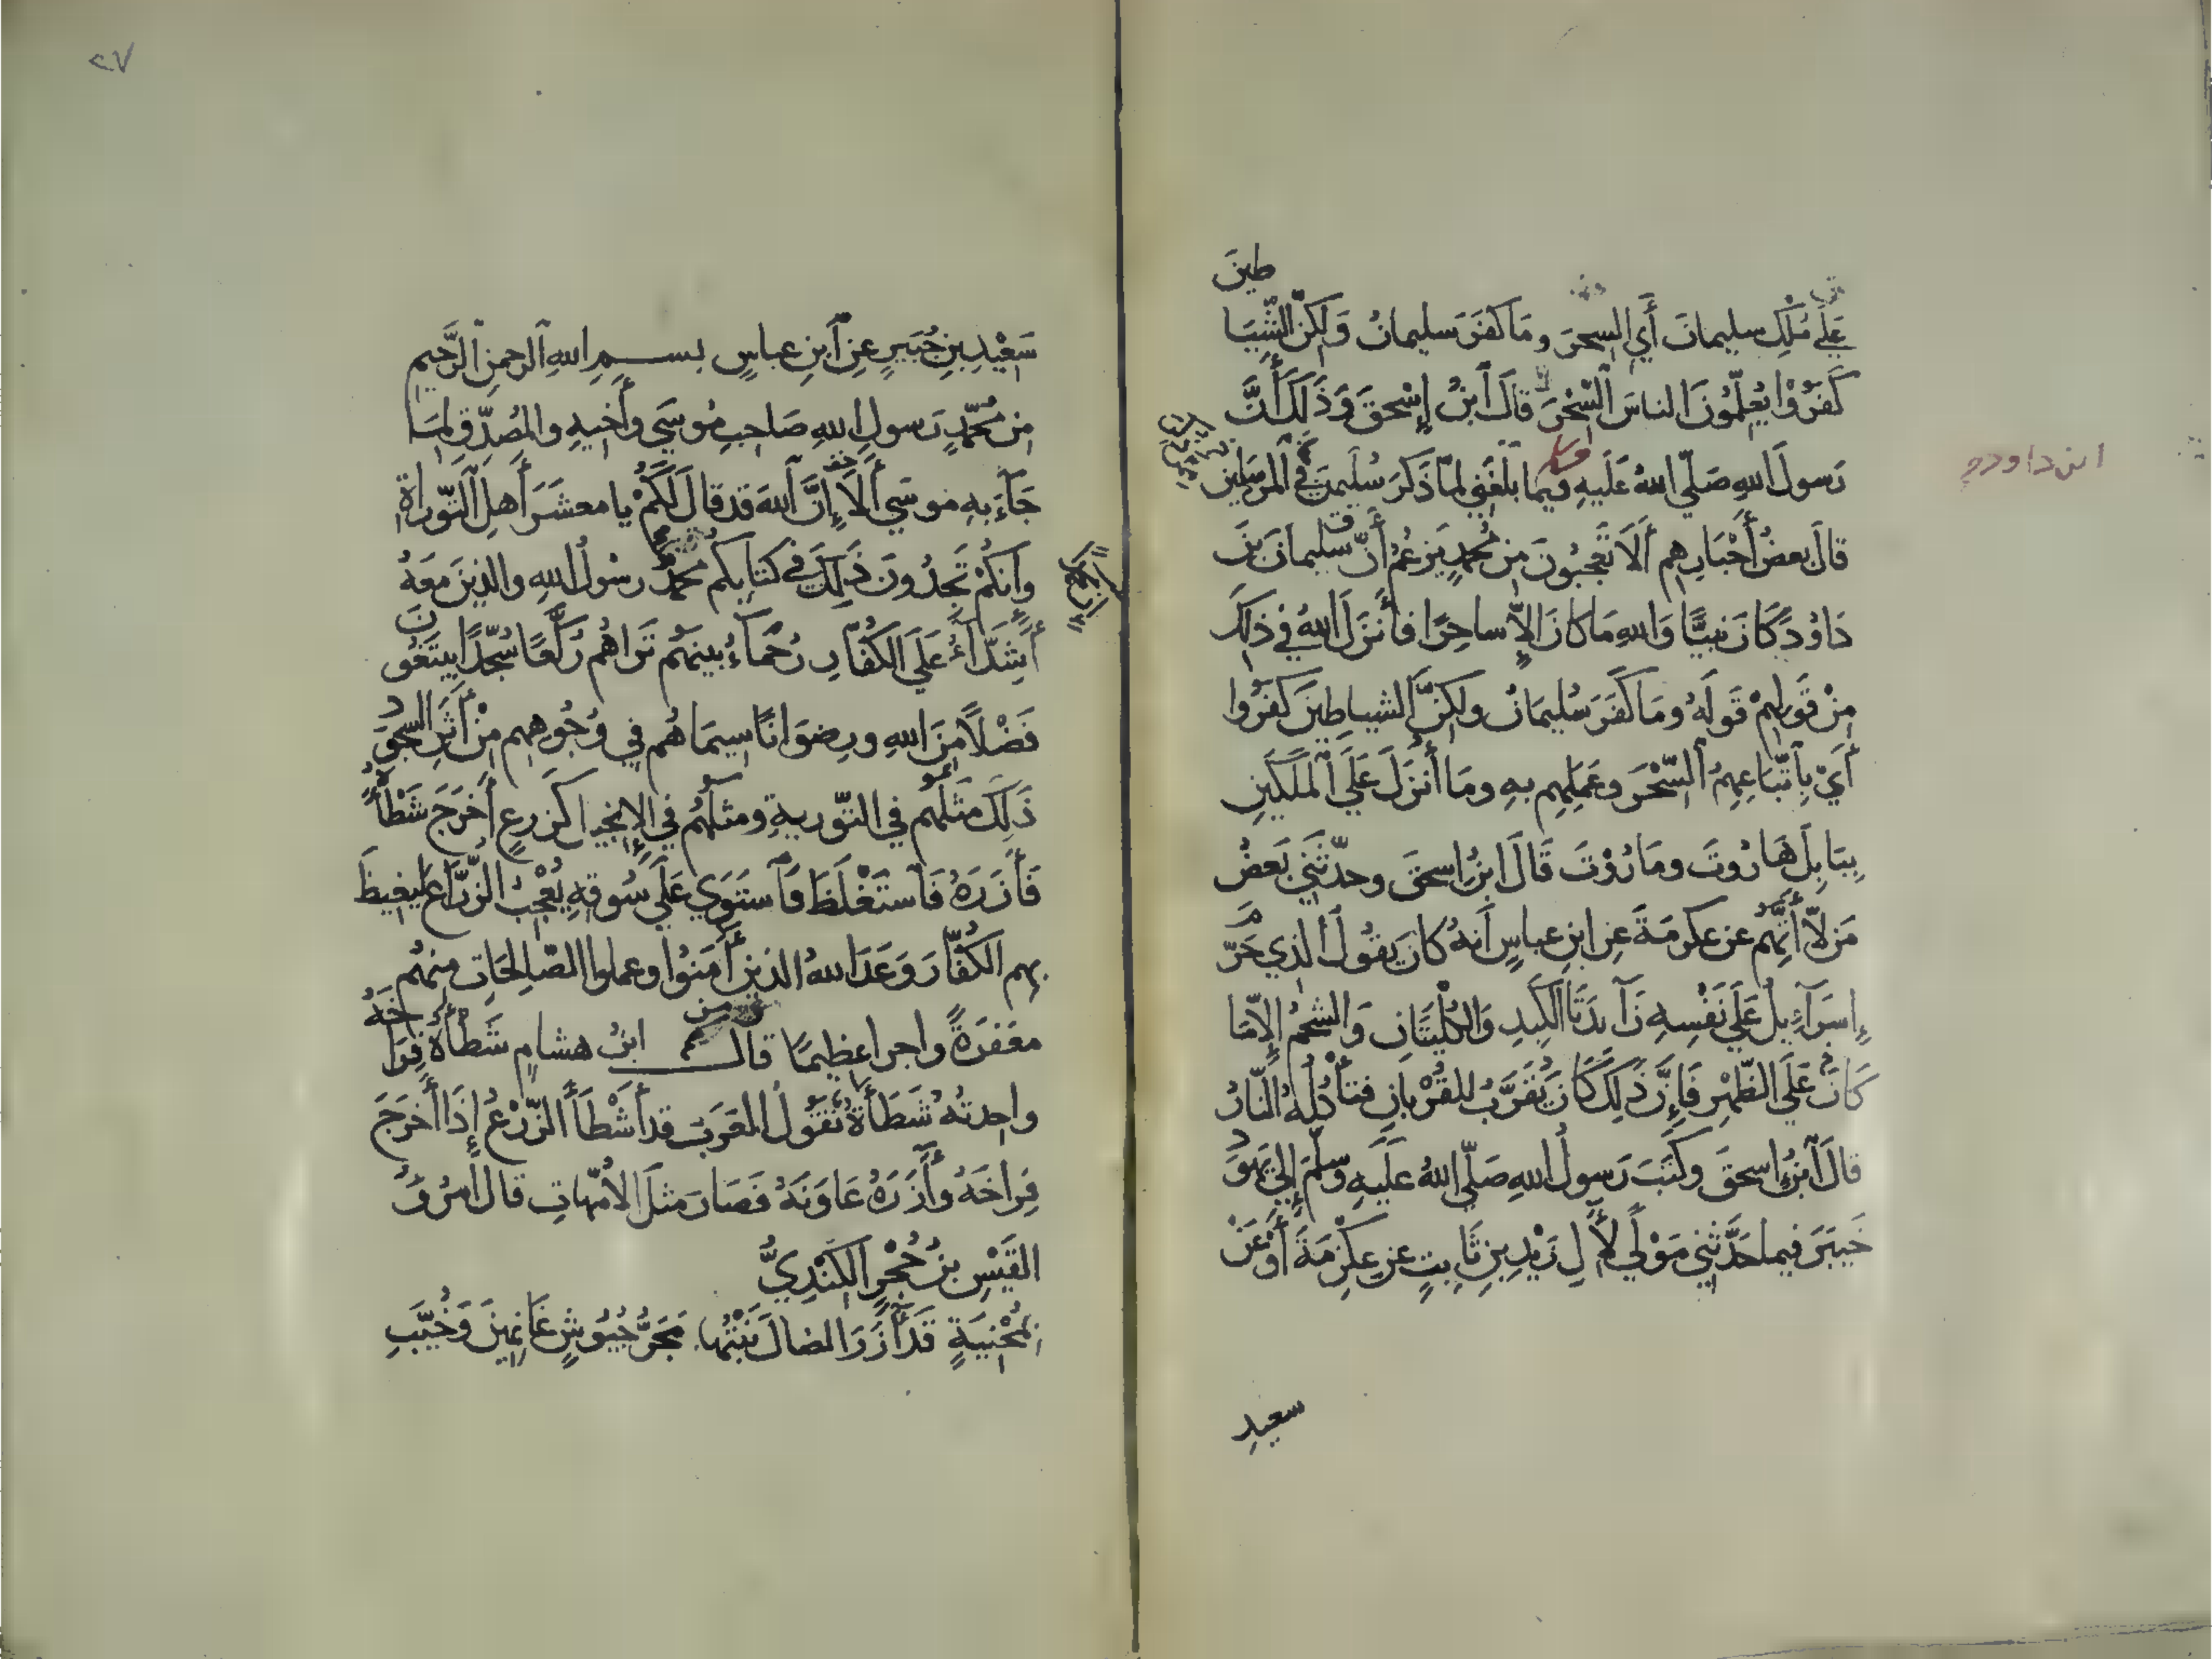 عَلَى مُلْكِ سليمانَ أَيِ السِّحرَ وما كفَرَ سليمانُ وَلكِنَّ الشَّيَا
طينَ
كَفَرُوْا يُعَلِّمُوْنَ الناسَ السِّحْرَ قالَ ابنُ إِسْحقَ وَذَلكَ أَنَّ
رَسولَ اللهِ صَلّى اللهُ عَلَيهِ فيما بَلَغَنِي لمّا ذَكَرَ سُلَيمنَ في المُرسَلين
ابن داود
قالَ بعضُ أَحْبَارِهِم أَلَا تَعْجَبُونَ مِن مُحمدٍ يَزعُمُ أَنَّ سليمانَ بنَ
دَاوُدَ كانَ نبيًّا وَاللهِ مَا كانَ إلاّ ساحِرًا فأَنزَلَ اللهُ في ذلِكَ
مِنْ قَولِهِمْ قَولَهُ ومَا كَفَرَ سُليمانُ ولكِنَّ الشياطِينَ كَفَرُوا
أَيْ بِاتّبَاعِهِمُ السِّحْرَ وعَمَلِهِم بهِ ومَا أُنزِلَ عَلَى المَلَكَينِ
بِبَابِلَ هَارُوتَ ومَارُوْتَ قَالَ ابنُ اسحقَ وحدّثَنِي بَعضُ
مَن لاّ أَتَّهِم عن عكرمَةَ عنِ ابنِ عباسٍ أَنهُ كانَ يقُولُ الذِي حَرَّمَ
إِسرَآءِيلُ عَلَى نَفْسِهِ زَآيدَتَا الكَبِدِ وَالكُلْيَتَانِ وَالشَّحمُ إلاّ مَا
كَانَ عَلَى الظَّهْرِ فَإِنَّ ذَلِكَ كَانَ يُقَرَّبُ للقُرْبانِ فتأْكُلُهُ النّارُ
قالَ ابنُ اسحقَ وكَتَبَ رَسولُ اللهِ صَلّى اللهُ عَلَيهِ وسلَّمَ إلى يَهودِ
خَيبَرَ فيما حَدَّثني مَوْلًى لِآلِ زَيْدِ بنِ ثَابِتٍ عن عِكْرِمَةَ أَوْ عَنْ
سعيد
٢٧
سَعِيْدِ بنِ جُبَيرٍ عنِ ابنِ عباسٍ بسمِ اللهِ الرحمنِ الرَّحيم
مِن مُحمّدٍ رَسولِ اللهِ صَاحِبِ مُوسَى وأَخِيهِ والمُصَدِّقِ لِمَا
جَآءَ بهِ موسَى أَلَا إِنَّ اللهَ قد قالَ لَكُمْ يا معشَرَ أَهلِ التّورَاةِ
وإِنكُمْ تَجِدُونَ ذَلِكَ في كتابِكُم مُحمّدٌ رسُولُ اللهِ والذينَ مَعَهُ
أَشِدَّآءُ عَلَى الكُفّارِ رُحَمَاءُ بينَهُم تَرَاهُم رُكَّعًا سُجَّدًا يبتَغُونَ
فَضْلًا مِنَ اللهِ ورِضوَانًا سيمَاهُم في وُجُوهِهِم مِنْ أَثَرِ السجودِ
ذَلِكَ مَثَلُهُم في التّوريةِ ومثلُهُم في الإنجيل كزرعٍ أَخرَجَ شَطْأَهُ
فَأَزَرَهُ فَاستَغْلَظَ فَاستَوَى عَلَى سُوقِهِ يُعْجِبُ الزُّرّاعَ لِيغيظَ
بِهِم الكُفّارَ وَعَدَ اللهُ الذينَ آمَنُوا وعملوا الصّالِحَاتِ مِنهُم
مغفرَةً واجرا عظيمًا قالَ ابنُ هشامٍ شَطْأَهُ فِرَاخَهُ
واحِدتُهُ شَطْأَةٌ تقُولُ العَرَبُ قد أَشْطَأَ الزَّرْعُ إِذَا أَخرَجَ
فِرَاخَهُ وأَزَرَهُ عَاوَنَهُ فَصَارَ مثلَ الأُمّهاتِ قالَ امرُؤُ
القَيْسِ بنُ حُجْرٍ الكِنْدِيُّ
بمَحْنِيَةٍ قَدْ أَزَرَ الضالَ نَبْتُهَا مَجَرِّ جُيُوشٍ غَانِمِينَ وَخُيَّبِ